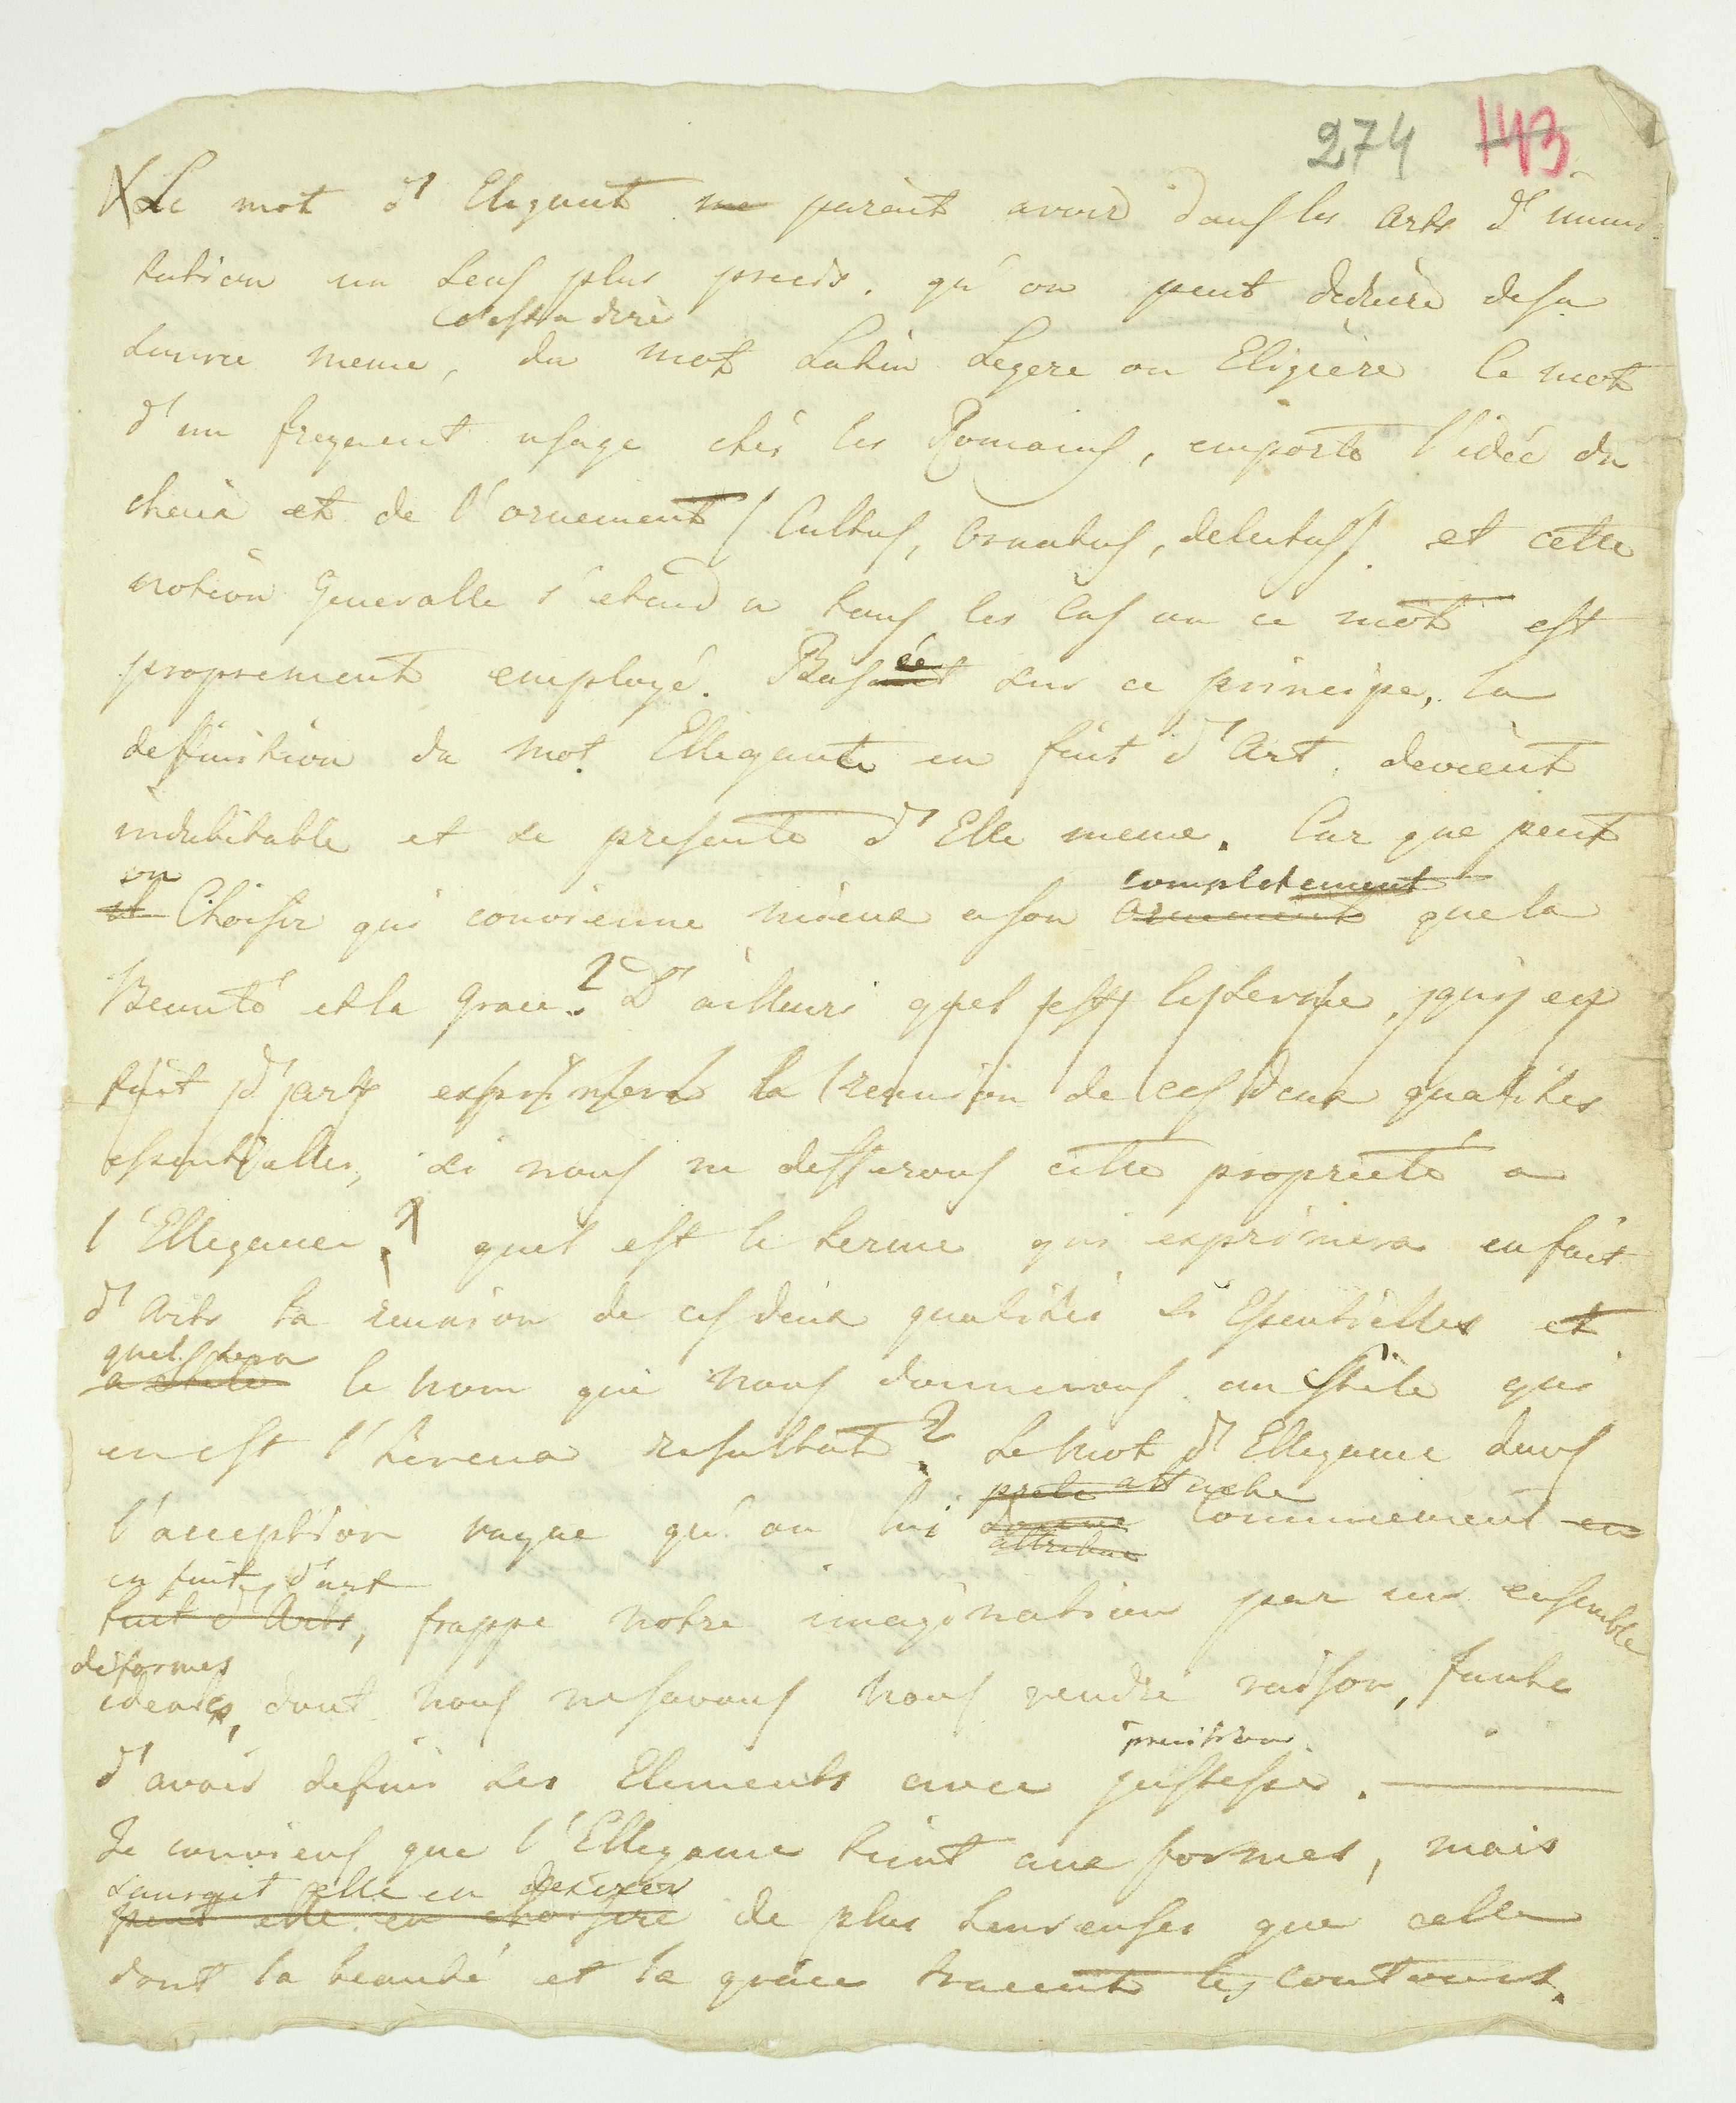 274 143
X Le mot d'Elegant me paroit avoir dans les Arts d'immi-
tation un sens plus precis. qu'on peut deduire de sa
c'est a dire
source meme, du mot Latin Legere ou Eligere le mot
d'un frequent usage chés les Romains, emporte l'idée du
choix et de l'ornement (Cultus, Ornatus, delectus) et cette
notion Generalle s'etend a tous les Cas ou ce mot est
proprement employé. Basée sur ce principe, la
definition du mot Ellegante en fait d'Art devient
indubitable et se presente d'Elle meme. Car que peut
on completement
il Choisir qui convienne mieux a son Ornement que la
Beauté et la Grace? D'ailleurs quel est le terme, qui en
fait d'art exprimera la reunion de ces deux qualités
essentielles, si nous ne defferons cette proprieté a
l'Ellegance? quel est le terme qui exprimera en fait
d'Arts la reunion de ces deux qualités si Essentielles et
quel sera
a stile le nom que nous donnerons au Stile qui
en est l'heureux resultat? Le Mot d'Ellegance dans
prete attache
l'acception vague qu'on lui donne communement en
attribue
en fait d'art
fait d'Arts, frappe notre imagination par un ensemble
de formes
ideales, dont nous ne savons nous rendre raison, faute
precision
d'avoir defini ses Elements avec justesse.
Je conviens que l'Ellegance tient aux formes, mais
sauroit elle en desirer
peut elle en choisire de plus heureuses que celle
dont la beauté et la grace tracent les contours.